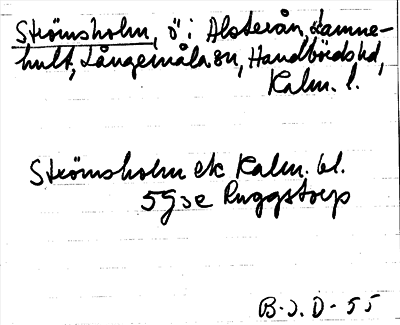 Strömsholm, ö i Alsterån, Lamne-
hult, Långemåla sn, Handbörds hd,
Kalm. l.
Strömsholm ek Kalm. bl.
5g3e Ruggstorp
B.J. D-55